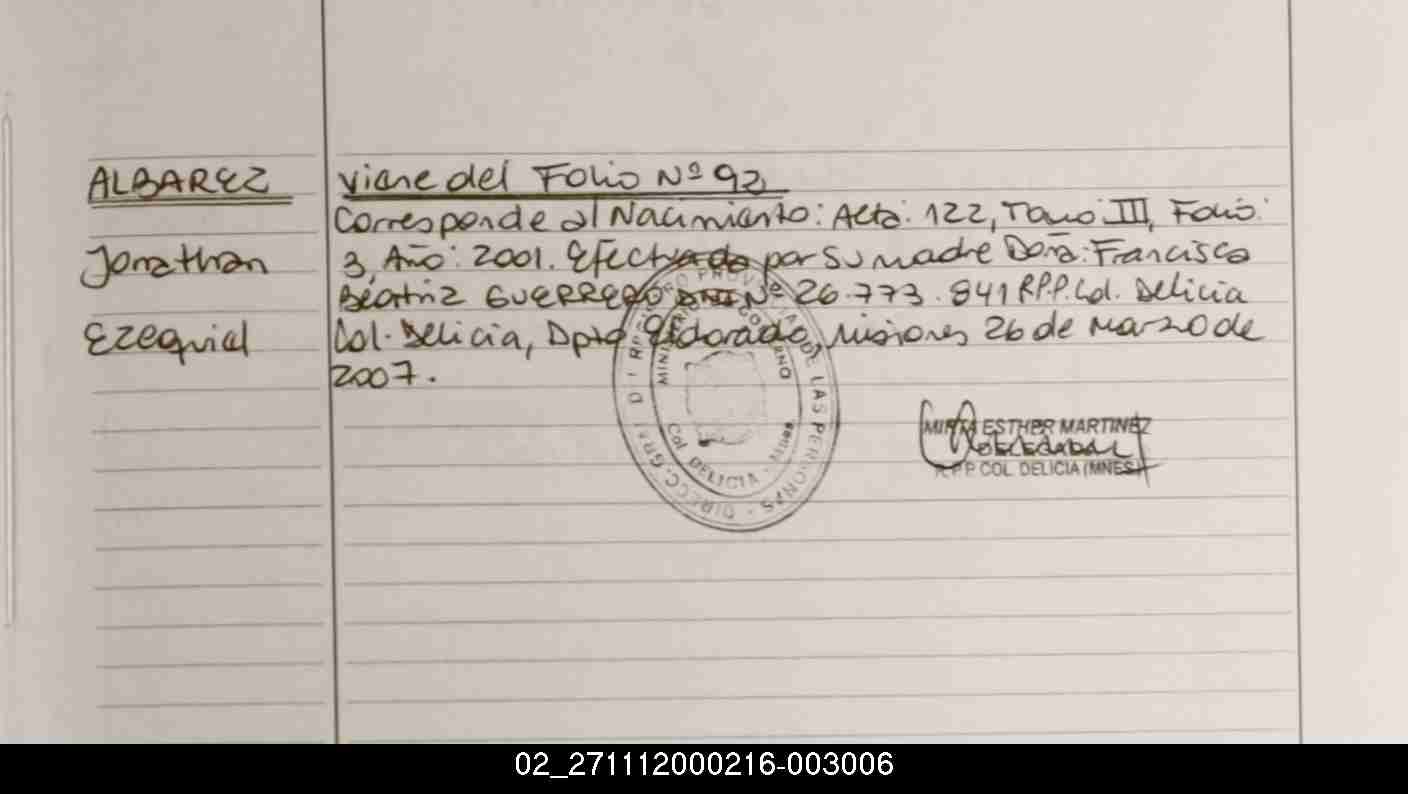 ALBAREZ
Jonathan
Ezequiel
Viene del Folio Nº 92
Corresponde al Nacimiento: Acta: 122, Tomo III, Folio:
3, Año: 2001. Efectuada por su madre Doña: Francisca
Beatriz GUERRERO DNI Nº 26.773.841 R.P.P. Col. Delicia
Col. Delicia, Dpto Eldorado, Misiones 26 de Marzo de
2007.
DIRECC. GRAL DEL REGISTRO PROVINCIAL DE LAS PERSONAS
MINISTERIO DE GOBIERNO
Col DELICIA - Mnes
MIRTA ESTHER MARTINEZ
R.P.P. COL. DELICIA (MNES)
02_271112000216-003006